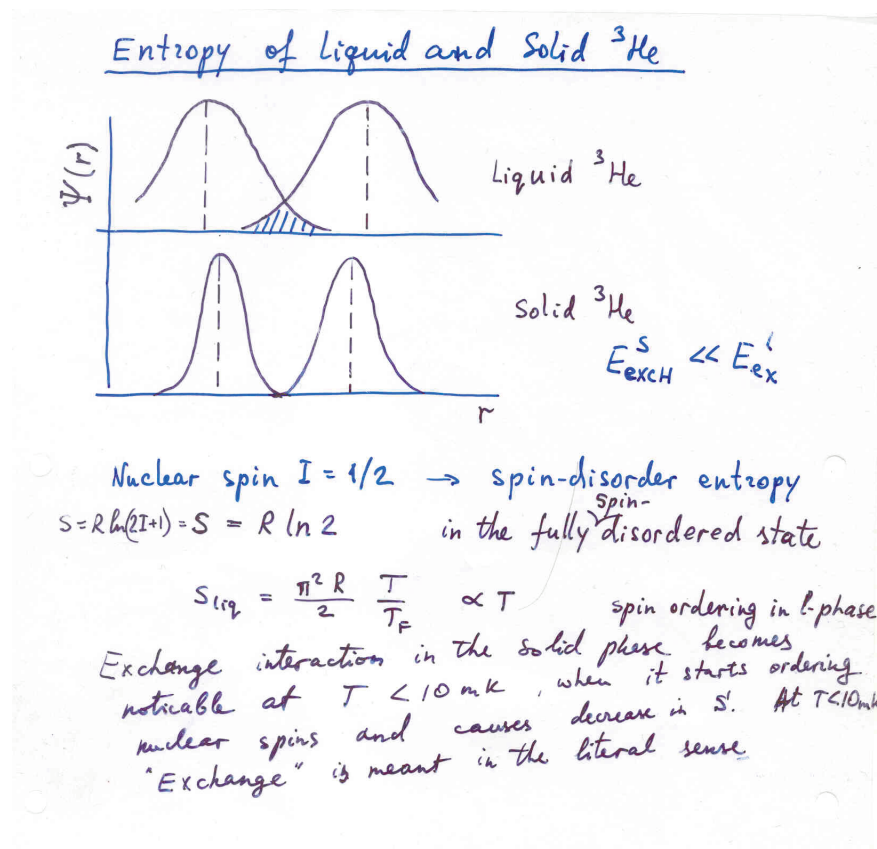 Entropy of Liquid and Solid ³He
Ψ(r)
Liquid ³He
Solid ³He
E_excH^S << E_ex^l
r
Nuclear spin I = 1/2 → spin-disorder entropy
S = R ln(2I+1) = S = R ln 2 in the fully spin-disordered state
S_liq = π² R / 2 T / T_F ∝ T spin ordering in l-phase
Exchange interaction in the solid phase becomes
noticable at T < 10 mK, when it starts ordering
nuclear spins and causes decrease in S. At T<10mK
"Exchange" is meant in the literal sense